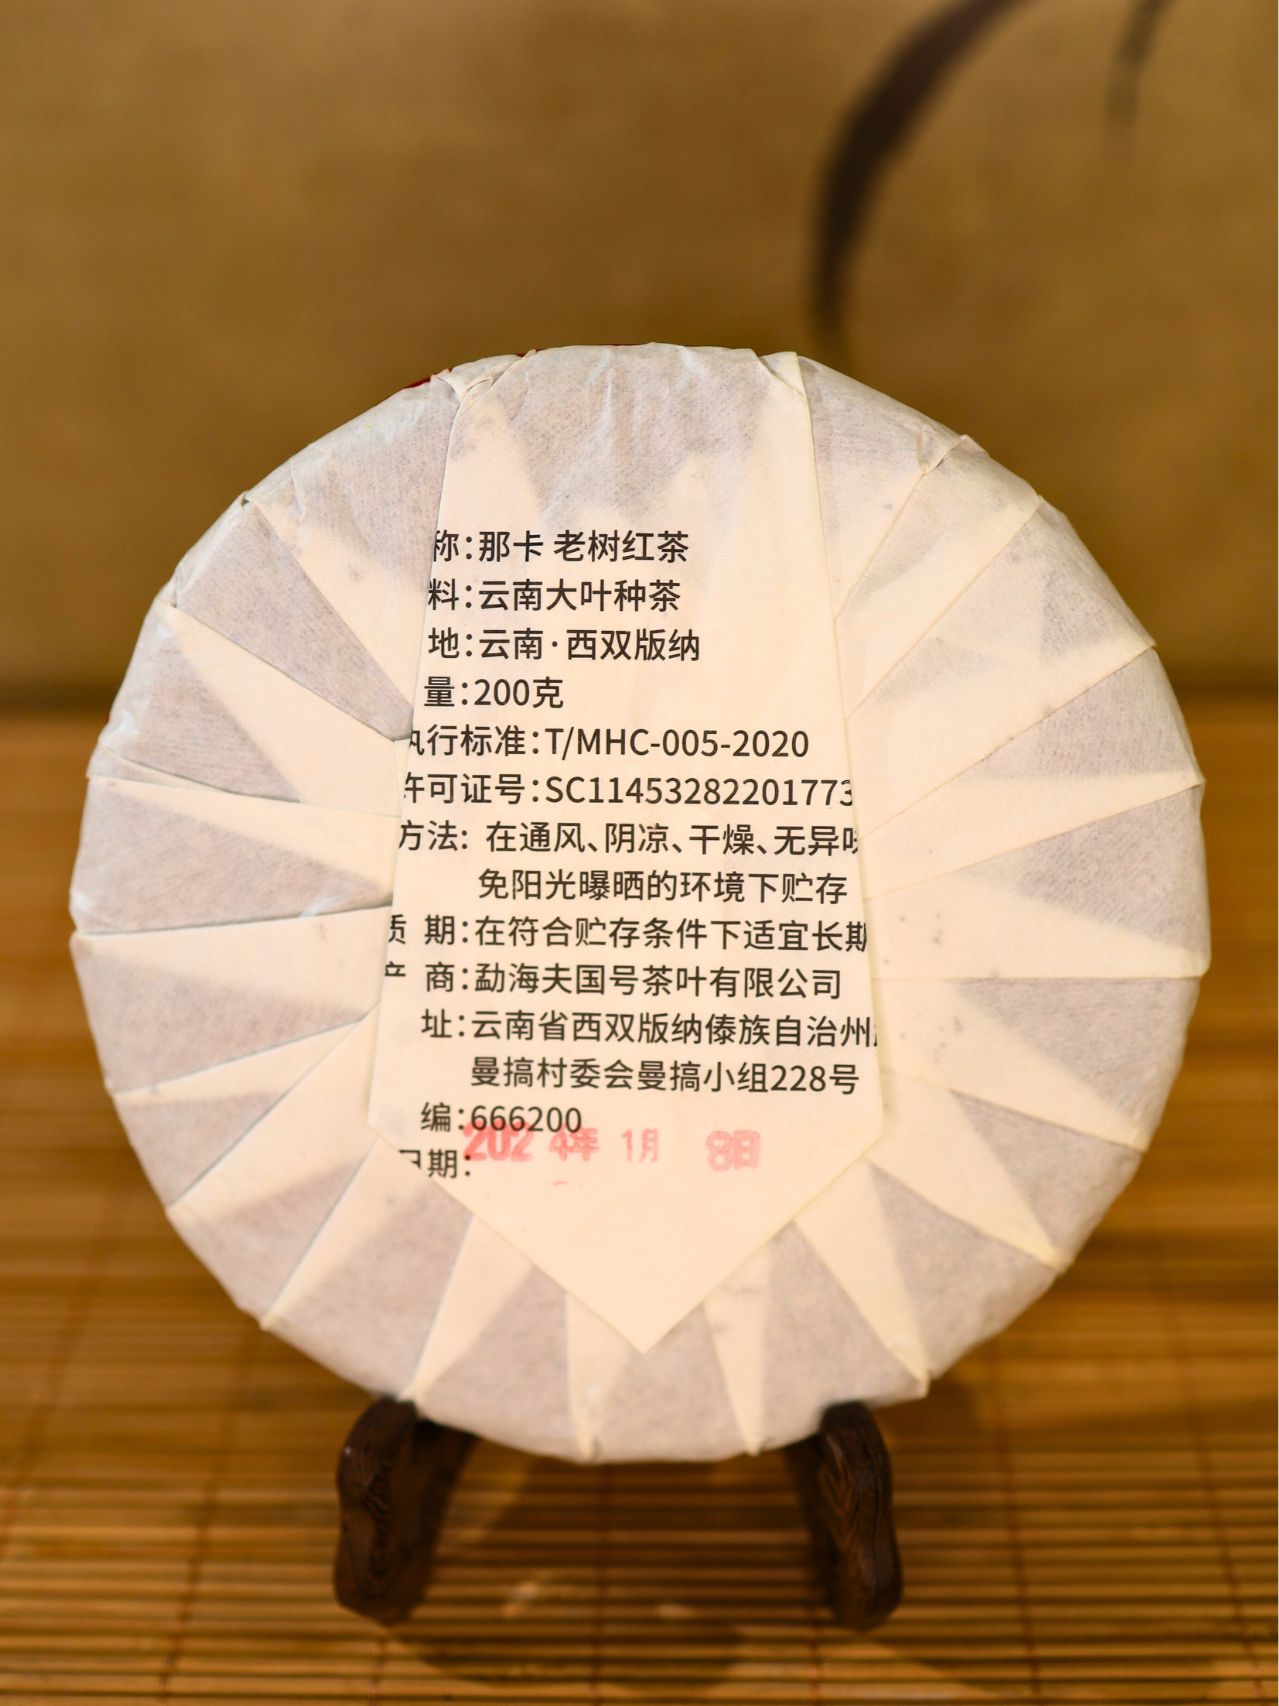 称：那卡 老树红茶
料：云南大叶种茶
地：云南·西双版纳
量：200克
执行标准：T/MHC-005-2020
许可证号：SC11453282201773
方法: 在通风、阴凉、干燥、无异味
免阳光曝晒的环境下贮存
质 期：在符合贮存条件下适宜长期
产 商：勐海夫国号茶叶有限公司
址：云南省西双版纳傣族自治州
曼搞村委会曼搞小组228号
编：666200
日期：2024年 1月 8日